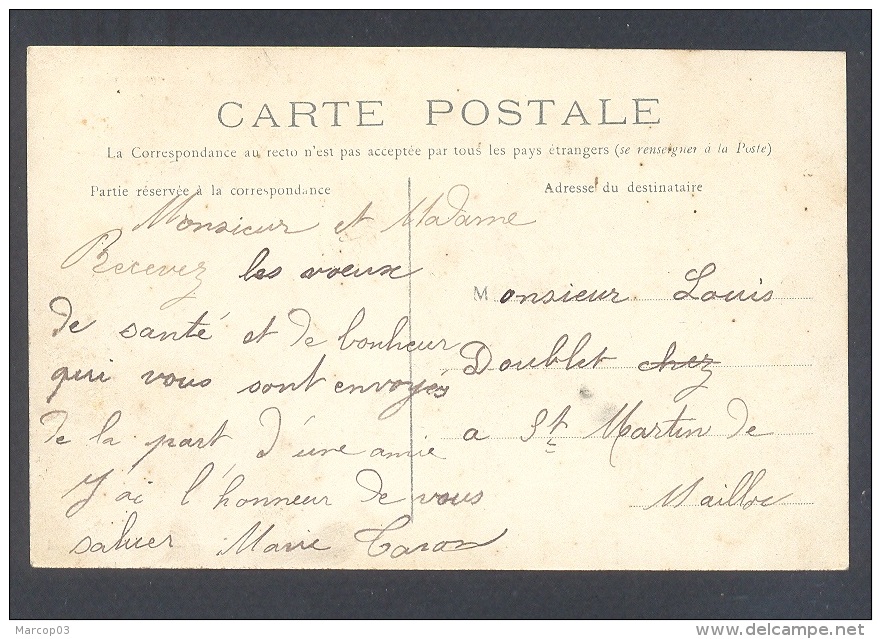 CARTE POSTALE
La Correspondance au recto n'est pas acceptée par tous les pays étrangers (se renseigner à la Poste)
Partie réservée à la correspondance
Adresse du destinataire
Monsieur et Madame
Recevez les voeux
de santé et de bonheur
qui vous sont envoyés
de la part d'une amie
J'ai l'honneur de vous
saluer Marie Caron
Monsieur Louis
Doublet chez
a St Martin de
Mailloc
Marcop03
delcampe.net